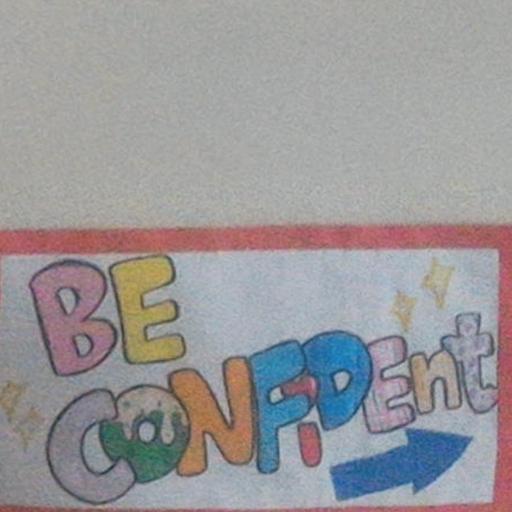 BE
CONFiDEnt